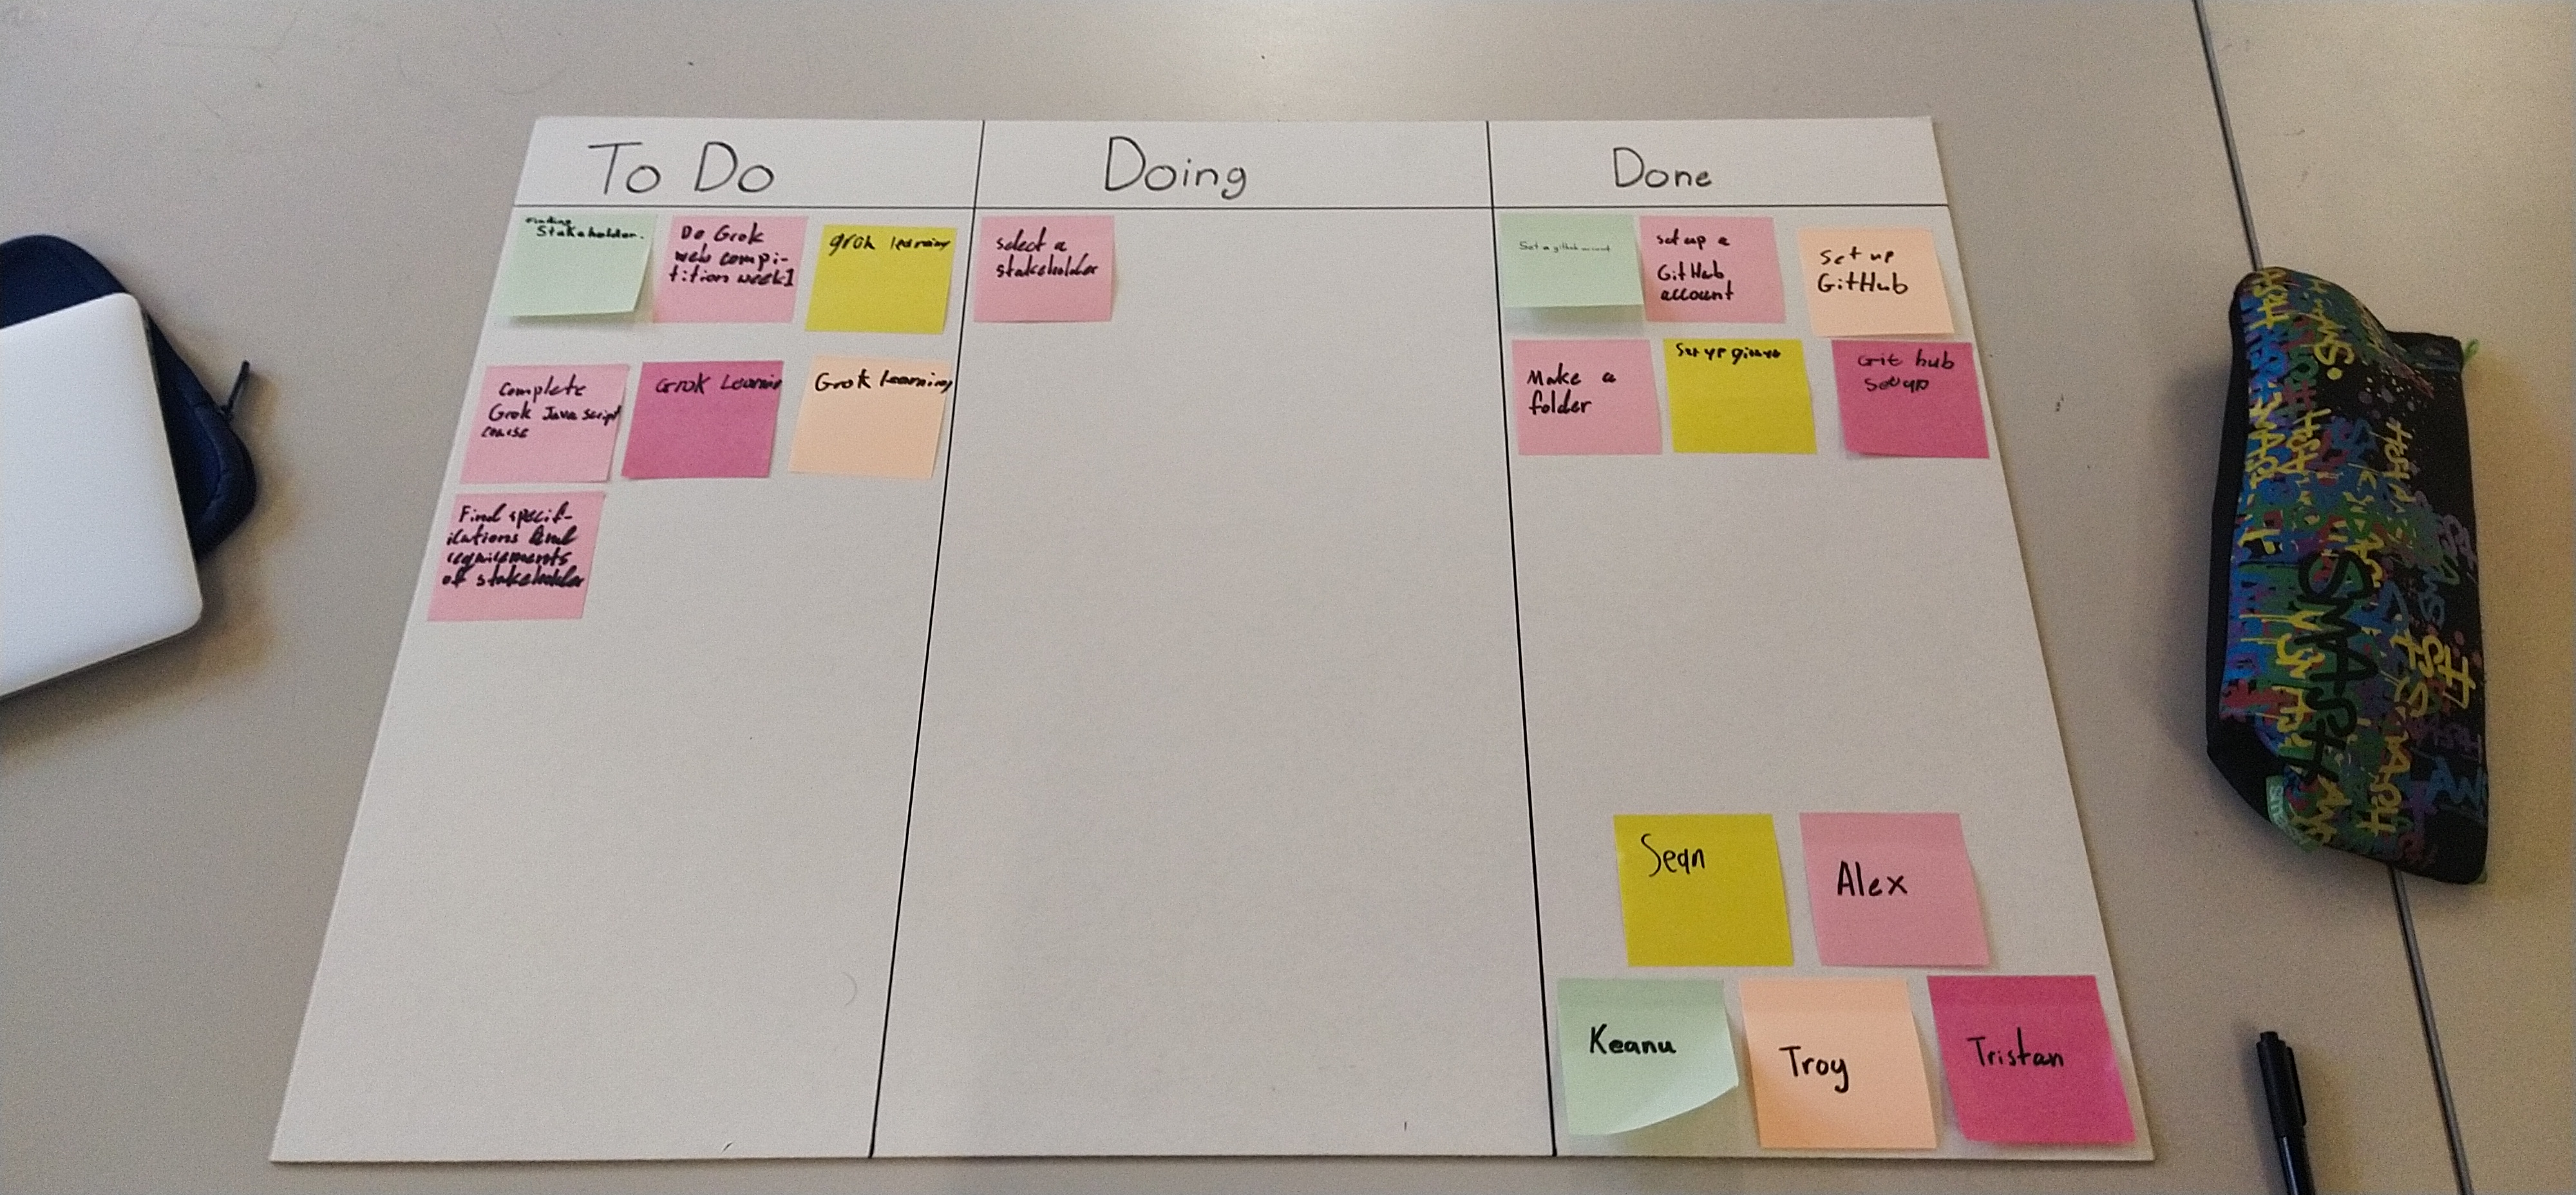 To Do
Doing
Done
Finding
Stakeholder.
Do Grok
web compi-
tition week1
grok learning
Complete
Grok Java script
course
Grok Learnin
Grok learning
Find specif-
ications and
requirements
of stakeholder
select a
stakeholder
Set a github account
set up a
GitHub
account
Set up
GitHub
Make a
folder
Set up
Git hub
Setup
Sean
Alex
Keanu
Troy
Tristan
SMASH